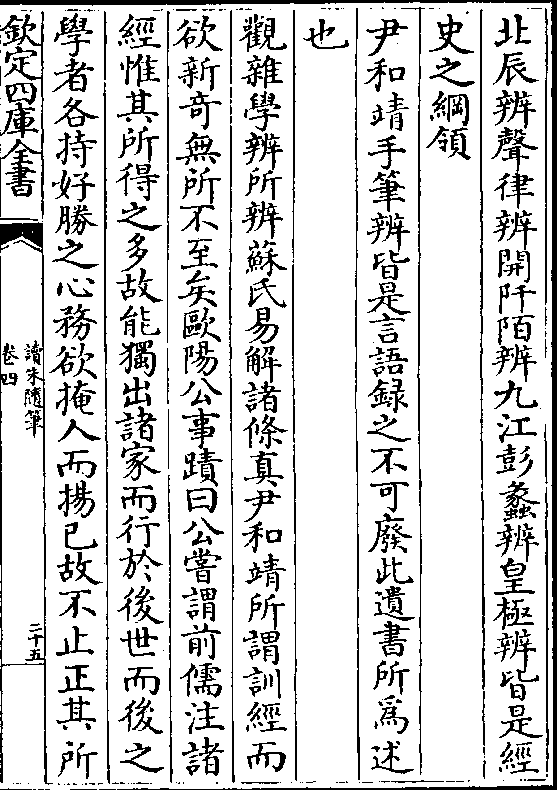 北辰辨聲律辨開阡陌辨九江彭蠡辨皇極辨皆是經
史之綱領
尹和靖手筆辨皆是言語録之不可廢此遺書所為述
也
觀雜學辨所辨蘇氏易解諸條真尹和靖所謂訓經而
欲新奇無所不至矣歐陽公事蹟曰公嘗謂前儒注諸
經惟其所得之多故能獨出諸家而行於後世而後之
學者各持好勝之心務欲掩人而揚已故不止正其所
欽定四庫全書
讀朱隨筆
卷四
二十五